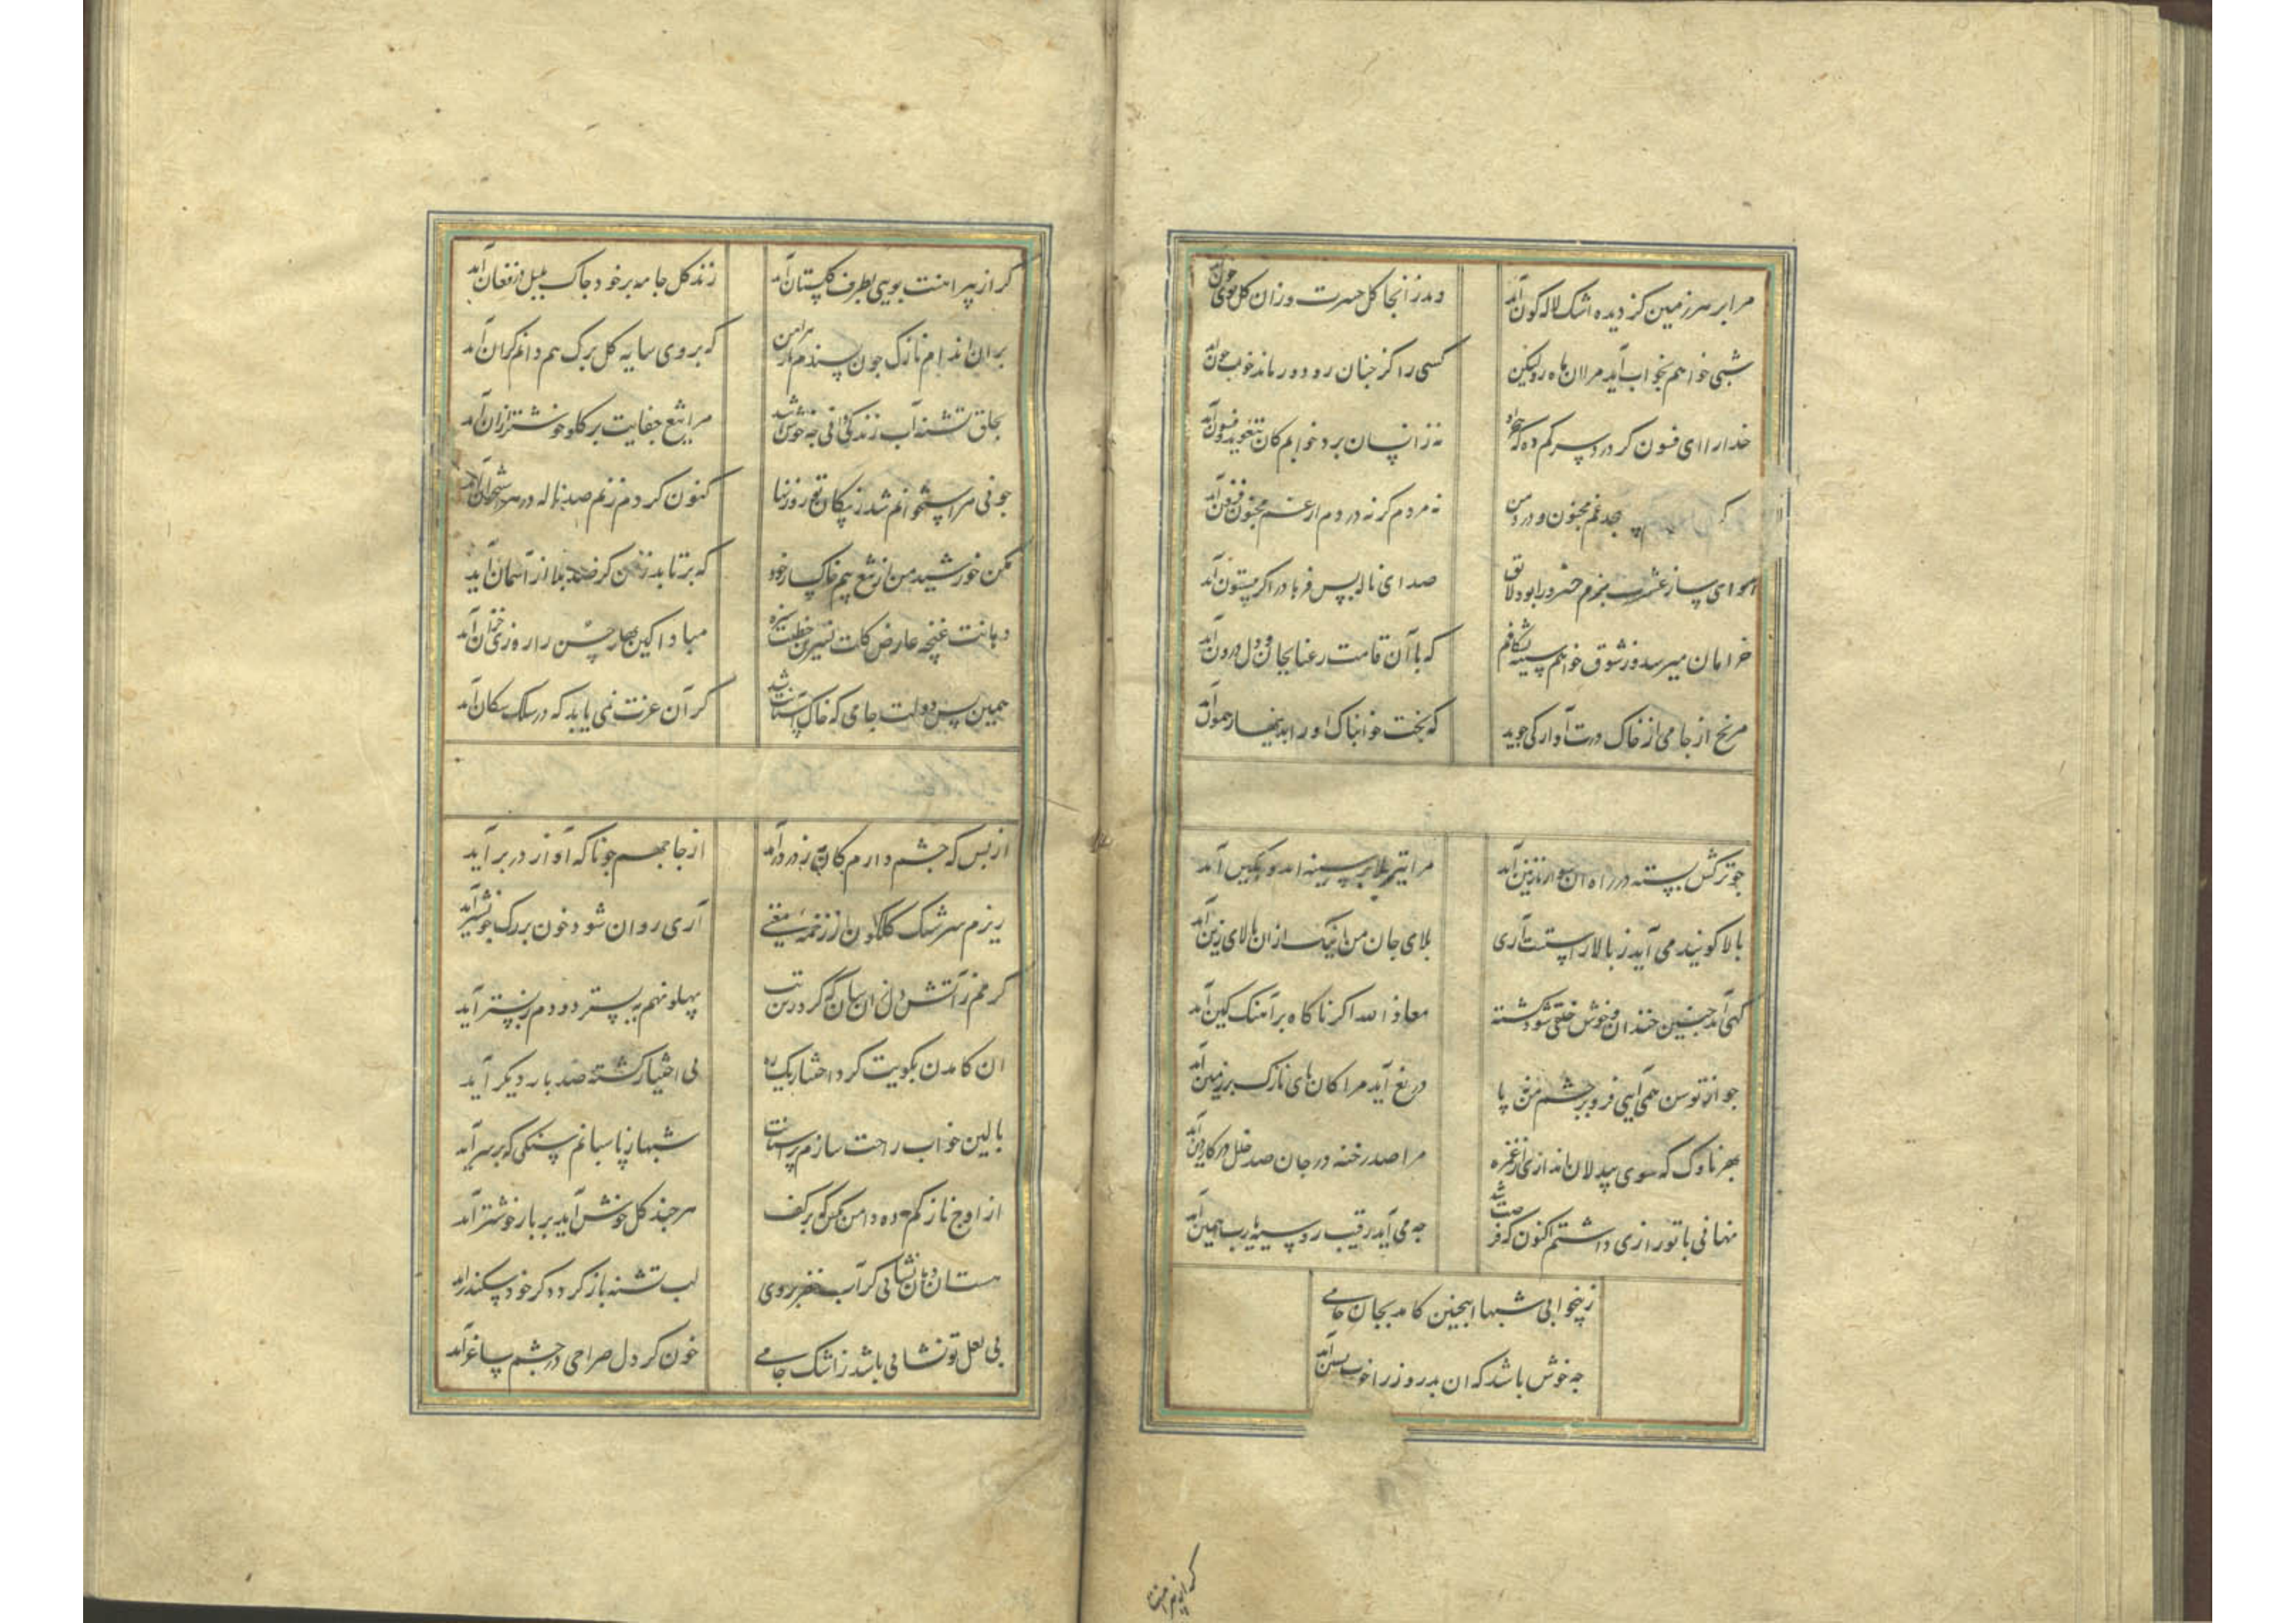 مرا بر هر زمین کز دیده اشک لاله کون آمد
دمد زانجا کل حسرت وزان کل بوی خون آمد
شبی خواهم بخواب آید مرا ان ماه رو لیکن
کسی را کز چنان رو دور ماند خواب چون آمد
خدارا ای فسون کر درد سر کم ده که
نه زانسان برد خوابم کان بتعوید و فسون آمد
غم مجنون و درد من
نه مردم کر نه دردم از غم مجنون فزون آمد
هوای ساز عشرت بزم خسرو را بود لایق
صدای ناله بس فرهاد را کز بیستون آمد
خرامان میرسد وز شوق خواهم سینه بشکافم
که با آن قامت رعنا بجان و دل درون آمد
مرنج از جامی از خاک درت آواز کی جوید
که بخت خوابناک او را بدینجا رهنمون آمد
چو ترکش بسته در راه ان سوار نازنین آمد
مرا تیر بلا بر سینه اندوهکین آمد
بلا کویند می آید ز بالا راستست آری
بلای جان من اینک ازان بالای زین آمد
کهی آمد چنین خندان و خوش خلقی شود کشته
معاذ الله اکر ناکاه بر آهنک کین آمد
چو از توسن همی آیی فرو بر چشم من نه پا
دریغ آید مرا کان پای نازک بر زمین آمد
بهر ناوک که سوی بیدلان اندازی از غمزه
مرا صد رخنه در جان صد خلل در کار دین آمد
نهانی با تو رازی داشتم اکنون که فرصت شد
چه می آید رقیب رو سیه یارب همین آمد
ز بیخوابی شبها اینچنین کامد بجان جامی
چه خوش باشد که ان بدروز را خواب پسین آمد
کر از پیراهنت بویی بطرف کلستان آمد
زند کل جامه بر خود چاک بلبل در فغان آمد
بران اندام نازک چون پسندم بار پیراهن
که بروی سایه کل برک هم دانم کران آمد
بحلق تشنه آب زندکانی چه خوش باشد
مرا تیغ جفایت بر کلو خوشتر ازان آمد
چو نی مر استخوانم شد ز پیکان تو روزنها
کنون کر دم زنم صد ناله در هر استخوان آمد
مکن خورشید من از تیغ بیم خاکسار خود
که برتابد ز من کر صد بلا از آسمان آید
دهانت غنچه عارض کلت نسرین خطت سبزه
مبادا کین بهار حسن را روزی خزان آمد
همین بس دولت جامی که خاک آستانت شد
کر آن عزت نمی یابد که در سلک سکان آمد
از بس که چشم دارم کان بت ز در درآمد
از جا جهم چو ناکه آواز در بر آید
ریزم سرشک کلکون از زخمه مغنی
آری روان شود خون بر رک چو نشتر آمد
کرمم ز آتش دل زان سان که کر درین تب
پهلو نهم به بستر دودم ز بستر آید
ان کامدن بکویت کرد اختیار یک ره
بی اختیار کشته صد بار دیکر آید
بالین خواب راحت سازم بر آستانت
شبها ز پاسبانم سنکی که بر سر آید
از اوج ناز کم ده دامن مکن که بر کف
هر چند کل خوش آید پربار خوشتر آمد
مستان دهان نشانی کر آب خضر روی
لب تشنه باز کردد کر خود سکندر آمد
بی لعل تو نشانی باشد ز اشک جامی
خون کر دل صراحی در چشم ساغر آمد